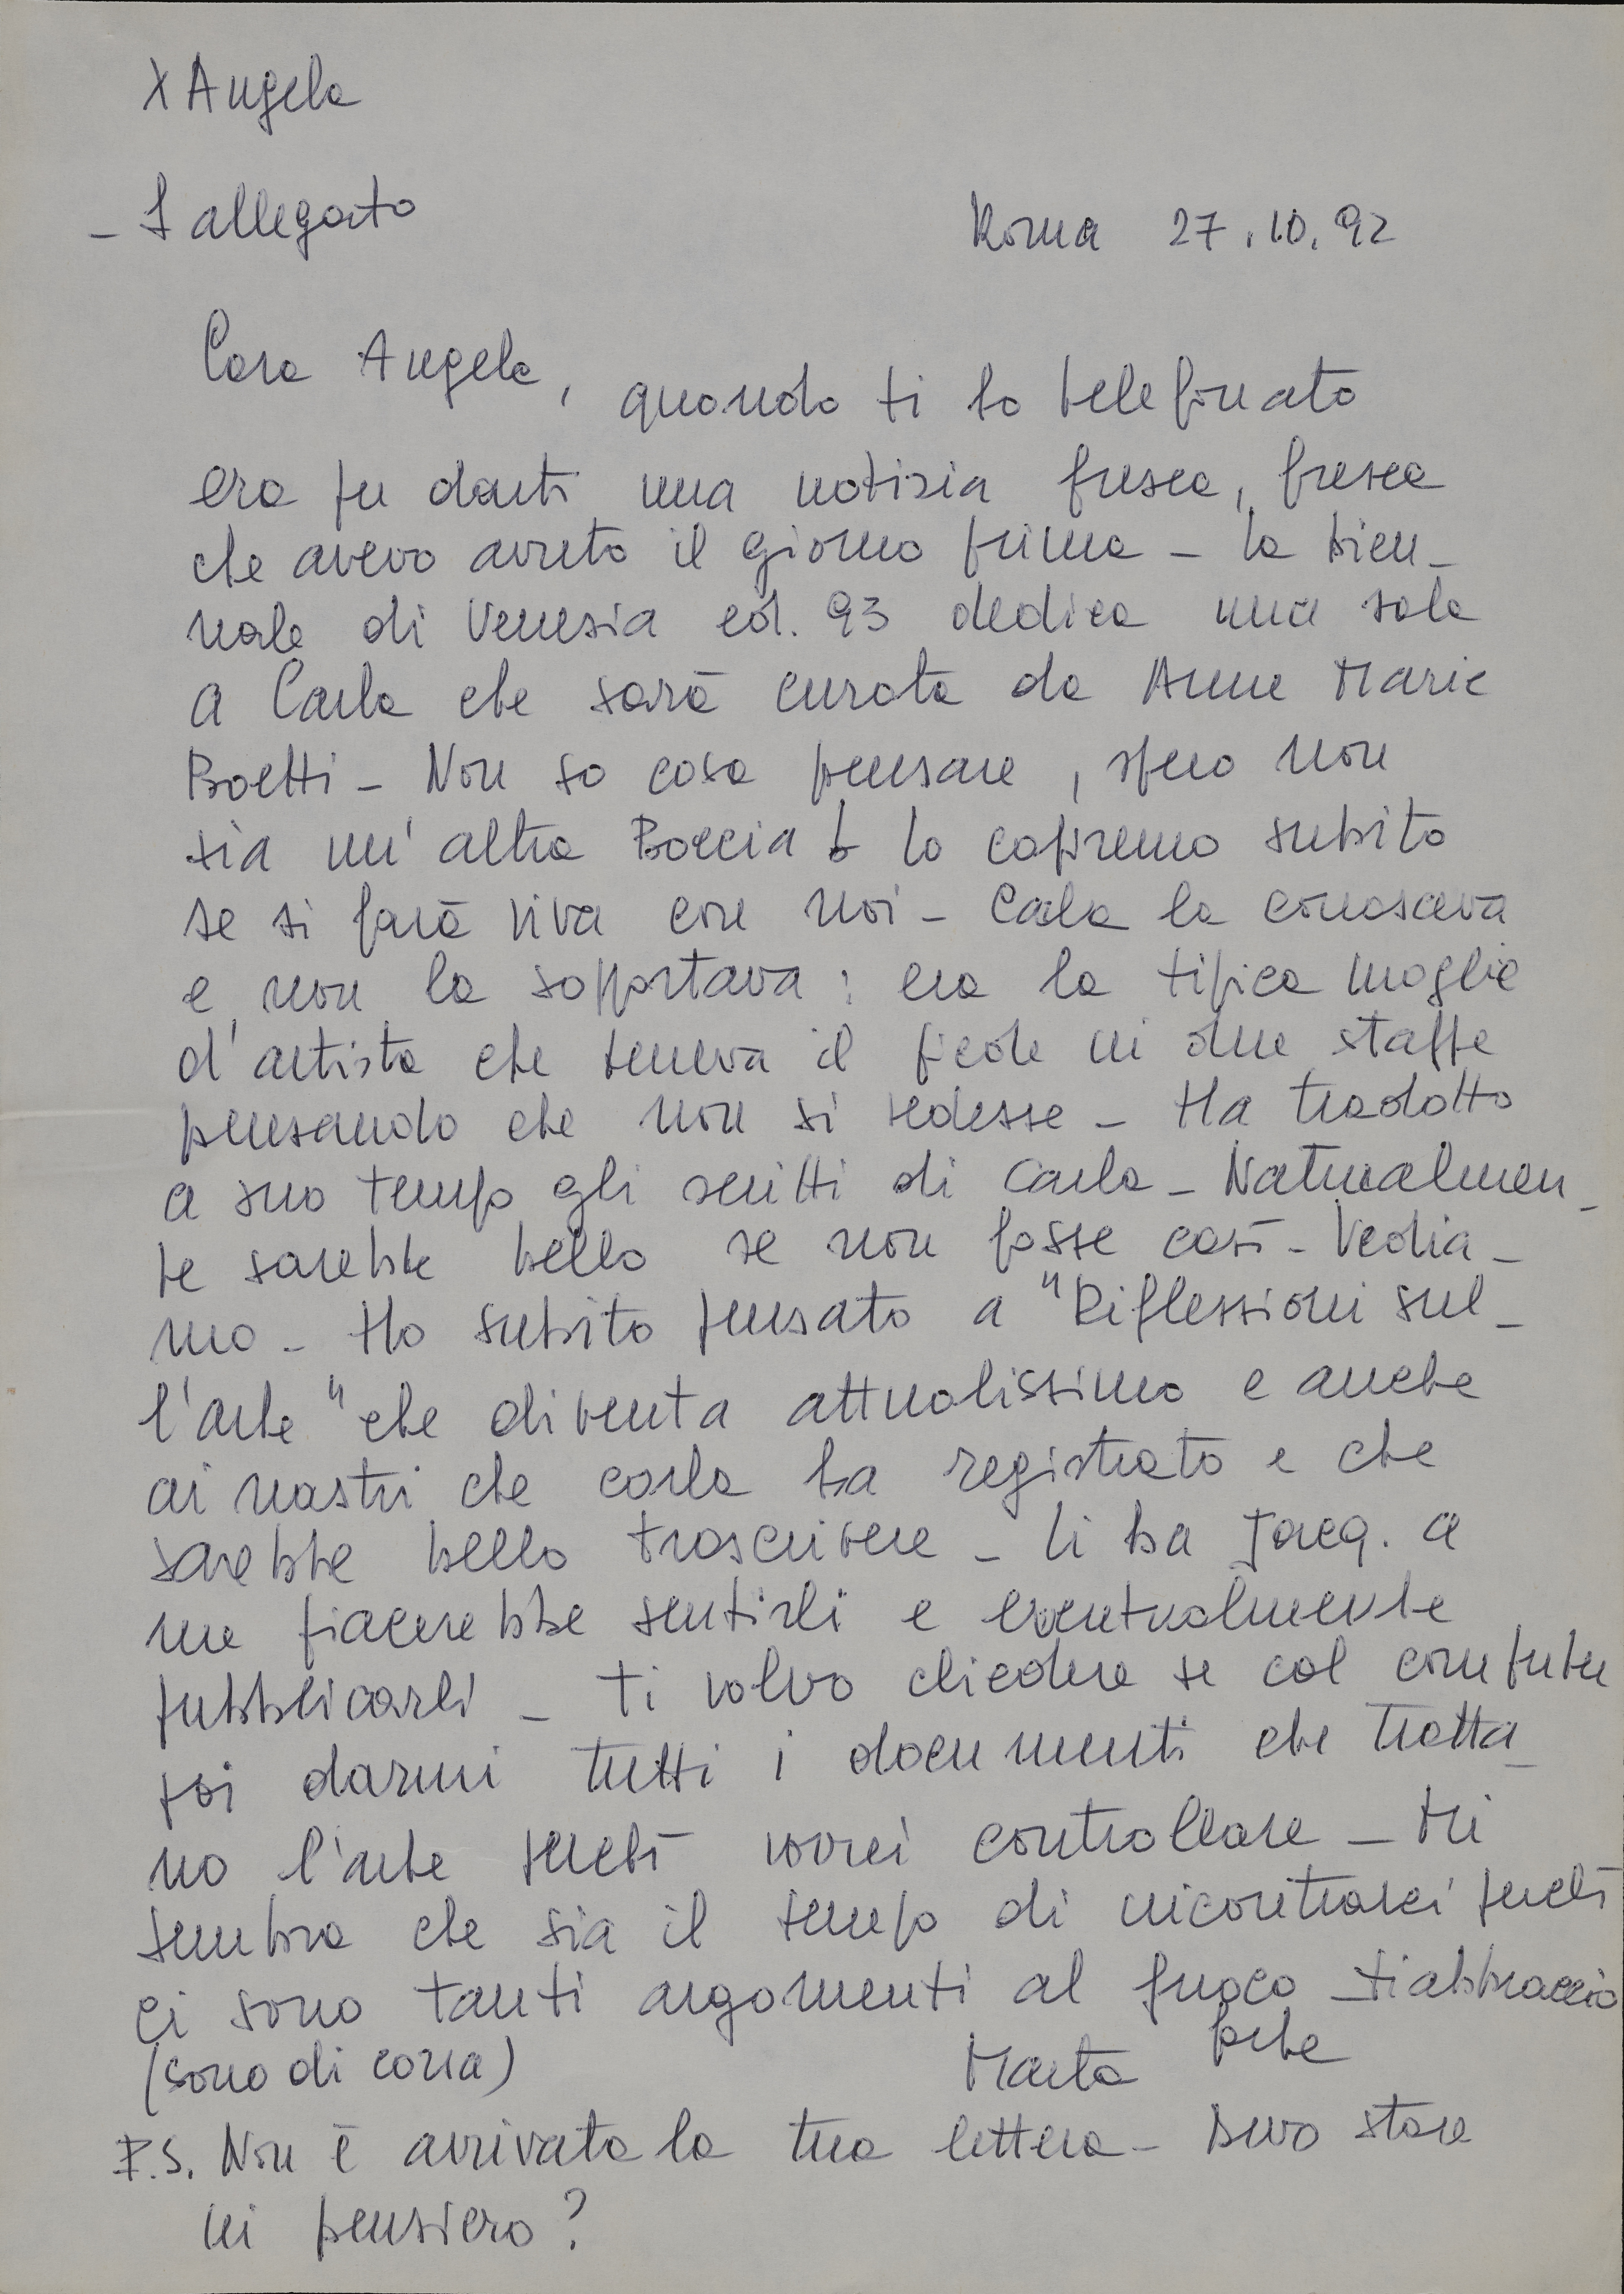 X Angela
- 1 allegato
Roma 27.10.92
Cara Angela, quando ti ho telefonato
era per darti una notizia fresca, fresca
che avevo avuto il giorno prima - la bien-
nale di Venezia ed. 93 dedica una sala
a Carla che sarà curata da Anne Marie
Boetti - Non so cosa pensare, spero non
sia un'altra Boccia! lo capiremo subito
se si farà viva con noi - Carla la conosceva
e non la sopportava: era la tipica moglie
d'artista che teneva il piede in due staffe
pensando che non si vedesse - Ha tradotto
a suo tempo gli scritti di Carla - Naturalmen-
te sarebbe bello se non fosse così - Vedia-
mo - Ho subito pensato a "Riflessioni sul-
l'arte" che diventa attualissimo e anche
ai nastri che Carla ha registrato e che
sarebbe bello trascrivere - li ha Jacq. a
me piacerebbe sentirli e eventualmente
pubblicarli - Ti volvo chiedere se col computer
poi darmi tutti i documenti che tratta-
no l'arte perché vorrei controllare - Mi
sembra che sia il tempo di incontrarci perché
ci sono tanti argomenti al fuoco - ti abbraccio
forte
(sono di corsa) Marta
P.S. Non è arrivata la tua lettera - Devo stare
in pensiero?